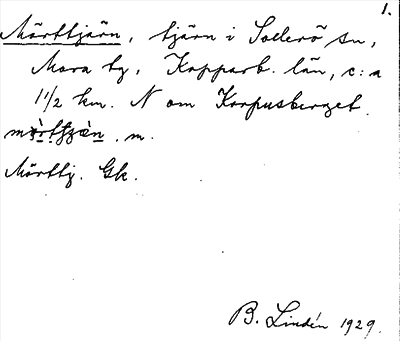 1.
Mörttjärn, tjärn i Sollerö sn,
Mora tg, Kopparb. län, c:a
1 1/2 km. N om Korpusberget.
m.
Mörttj. Gk.
B. Lindén 1929.